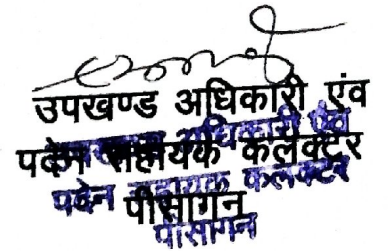 उपखण्ड अधिकारी एंव
पदेन सहायक कलेक्टर
पीसागन
उपखण्ड अधिकारी एंव
पदेन सहायक कलेक्टर
पीसागन